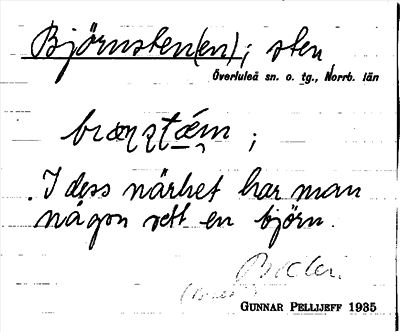 Björnsten(en); sten
Överluleå sn. o. tg., Norrb. län
I dess närhet har man
någon sett en björn.
GUNNAR PELLIJEFF 1935